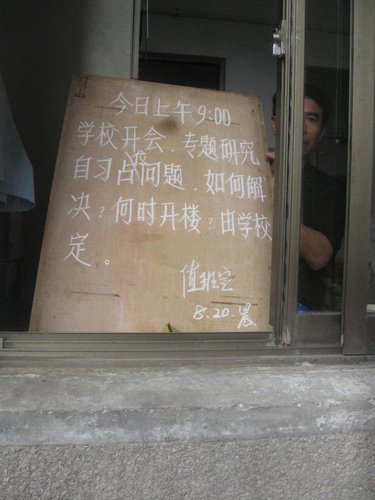 今日上午9:00
学校开会.专题研究
自习占座问题.如何解
决?何时开楼?由学校
定。
值班室
8.20.晨